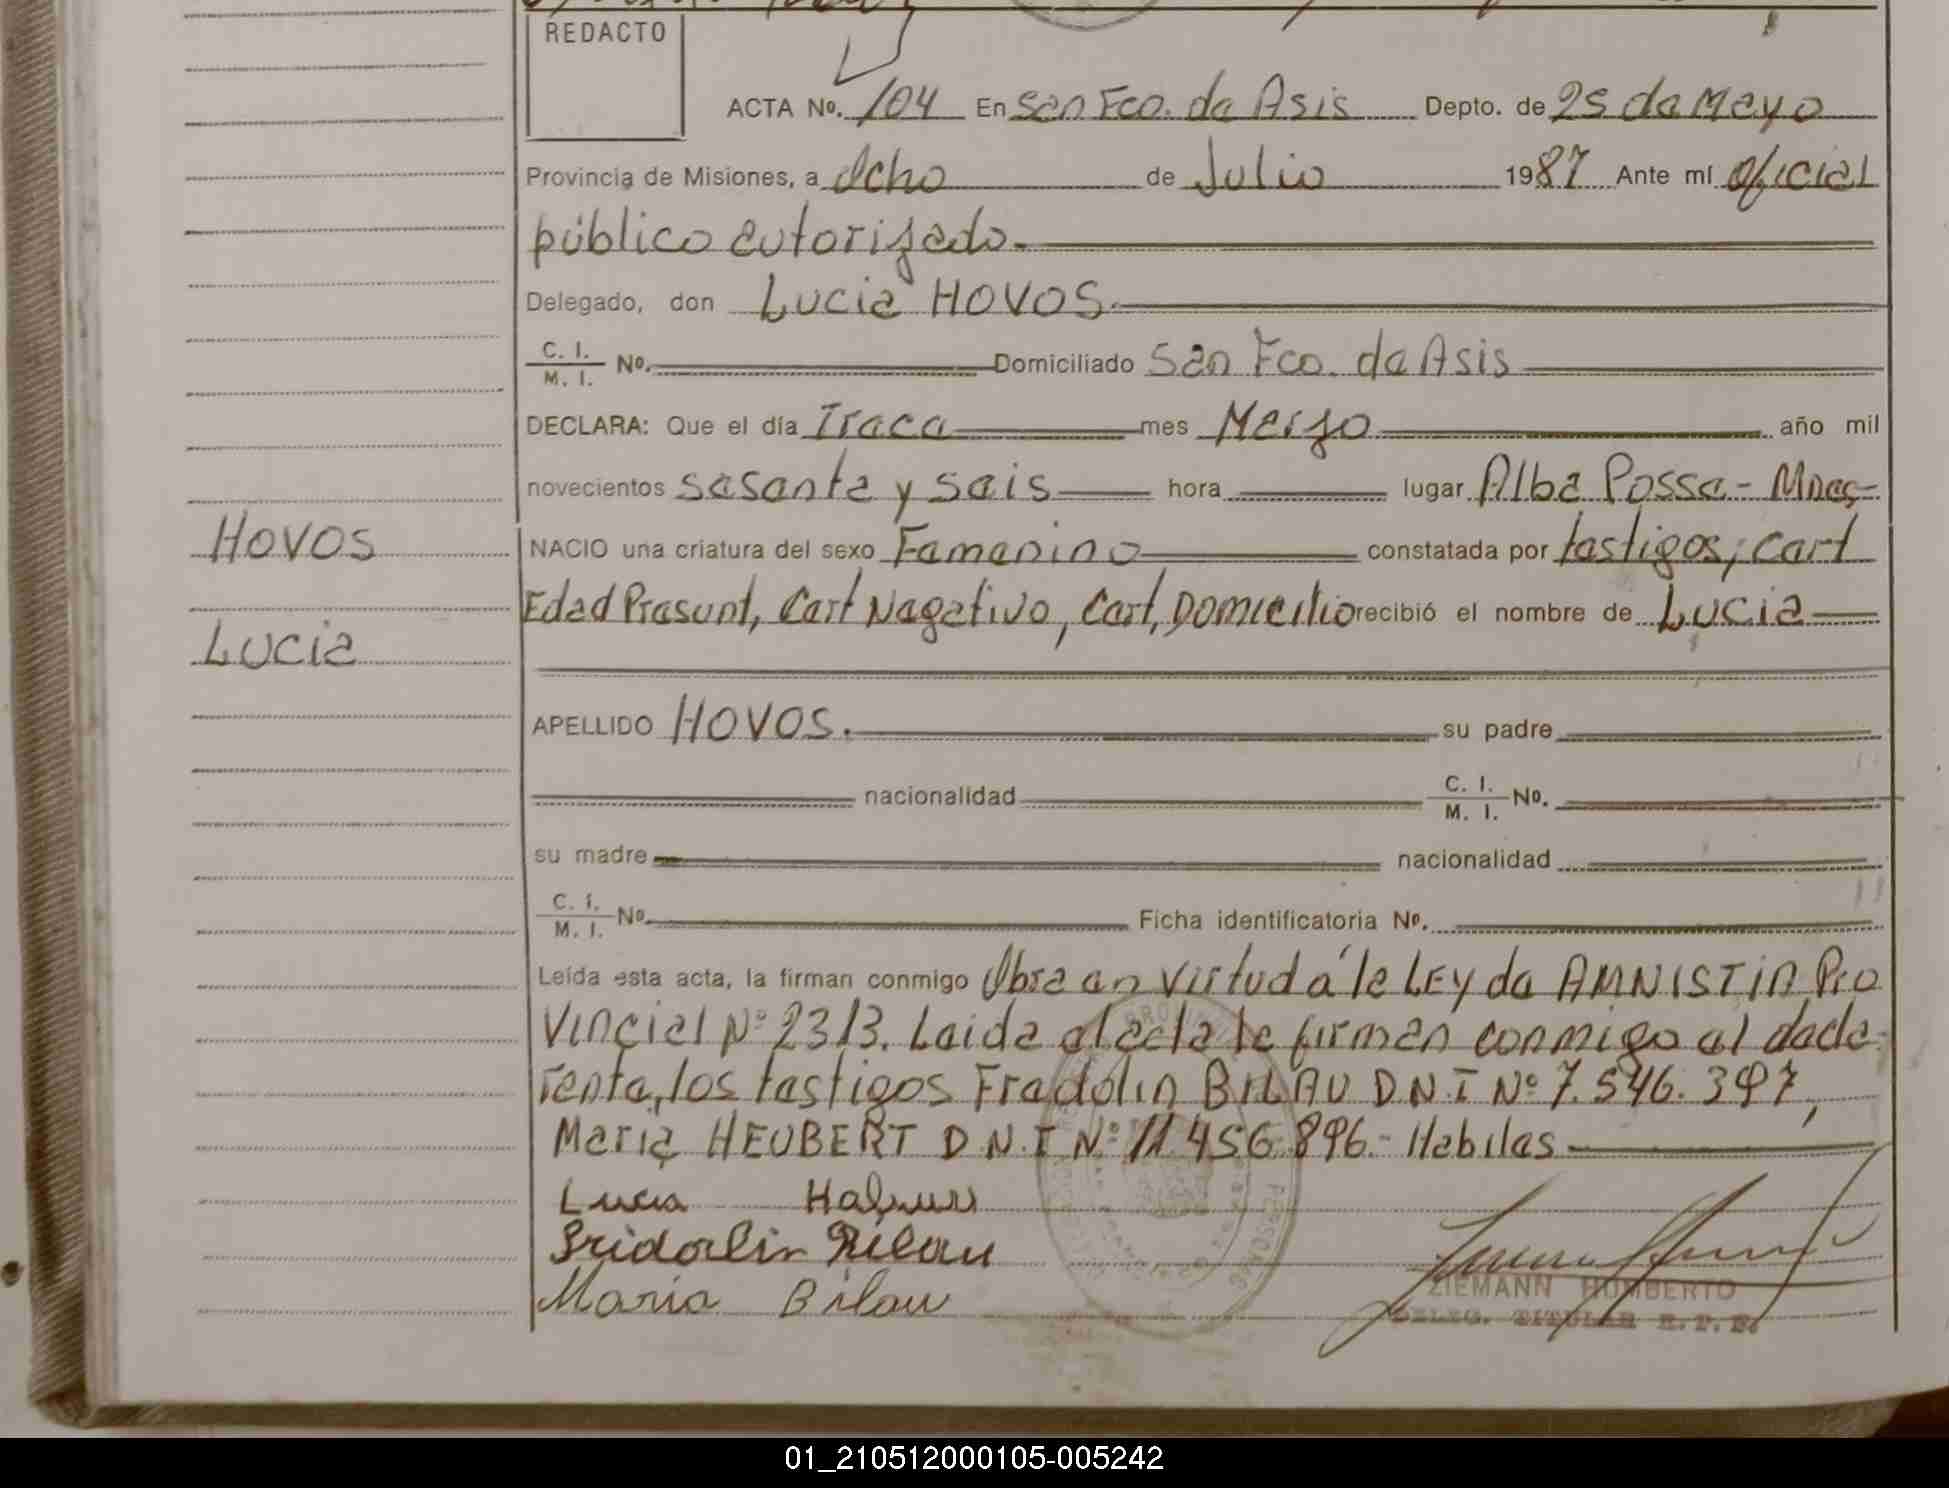 REDACTO
ACTA Nº. 104 En San Fco. de Asis Depto. de 25 de Mayo
Provincia de Misiones, a Ocho de Julio 1987 Ante mí oficial
público autorizado.
Delegado, don Lucia HOVOS.
C. I. / M. I. Nº. Domiciliado San Fco. de Asis
DECLARA: Que el día Trece mes Marzo año mil
novecientos sesenta y seis hora lugar Alba Posse - Mnes-
HOVOS
NACIO una criatura del sexo Femenino constatada por testigos, Cert
Edad Presunt, Cert Negativo, Cert, Domicilio recibió el nombre de Lucia
Lucia
APELLIDO HOVOS. su padre
nacionalidad C. I. / M. I. Nº.
su madre nacionalidad
C. I. / M. I. Nº. Ficha identificatoria Nº.
Leída esta acta, la firman conmigo Obra en virtud a la LEY de AMNISTIA Pro
vincial Nº 2313. Leida el acta la firman conmigo el decla-
rante, los testigos Fredolin BILAU D.N.I Nº 7.546.397,
Maria HEUBERT D.N.I Nº 11.456.896.- Habiles
Lucia
Fridolin Bilau
Maria Bilau
ZIEMANN HUMBERTO
DELEG. TITULAR R. P. P.
01_210512000105-005242